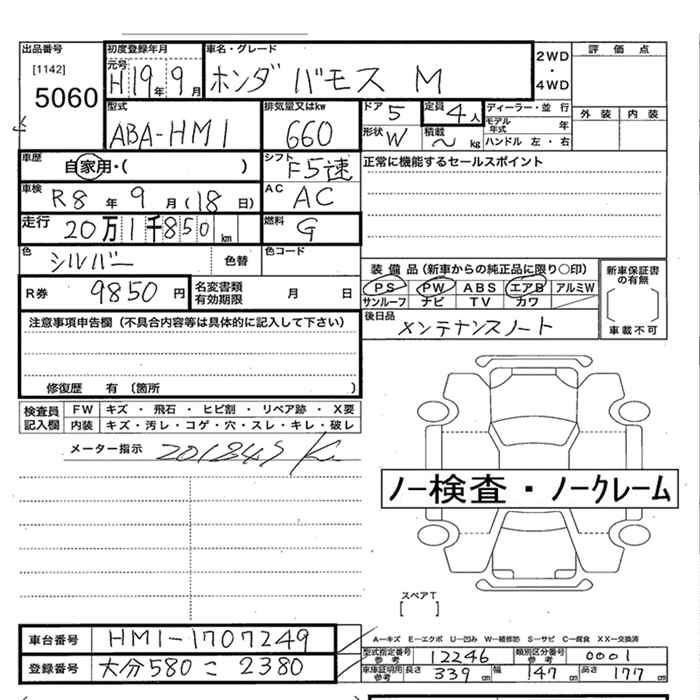 出品番号 初度登録年月 車名・グレード 2WD・4WD 評価点
[1142] 元号
5060 H19年9月 ホンダ バモス M
型式 排気量又はkw ドア 5 定員 4人 ディーラー・並行 外装 内装
ABA-HM1 660 形状 W 積載 〜 kg モデル年式 年
ハンドル 左・右
車歴 自家用・( ) シフト F5速 正常に機能するセールスポイント
車検 R8年9月(18日) AC AC
走行 20万1千850km 燃料 G
色 シルバー 色替 色コード
装備品(新車からの純正品に限り○印) 新車保証書の有無
R券 9850円 名変書類有効期限 月 日 PS PW ABS エアB アルミW
サンルーフ ナビ TV カワ [ ]
注意事項申告欄(不具合内容等は具体的に記入して下さい) 後日品 メンテナンスノート 車載不可
修復歴 有(箇所 )
検査員記入欄 FW キズ・飛石・ヒビ割・リペア跡・X要
内装 キズ・汚レ・コゲ・穴・スレ・キレ・破レ
メーター指示 201845 K
ノー検査・ノークレーム
スペアT
[ ]
車台番号 HM1-1707249 A−キズ E−エクボ U−凹み W−補修跡 S−サビ C−腐食 XX−交換済
型式指定番号参考 12246 類別区分番号参考 0001
登録番号 大分580こ2380 車庫証明用参考 長さ 339cm 幅 147cm 高さ 177cm